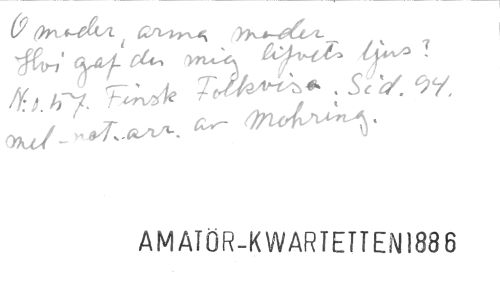 O moder, arma moder
Hvi gaf du mig lifvets ljus?
N:o 57. Finsk Folkvisa. Sid. 94.
mel-not. arr. av Mohring.
AMATÖR-KWARTETTEN 1886